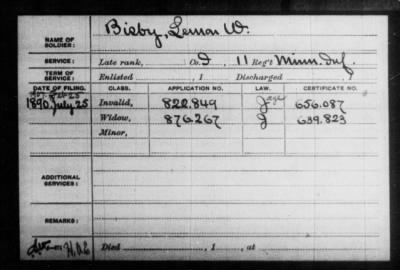 NAME OF SOLDIER: Bisby, Leman W.
SERVICE: Late rank, Co. I, 11 Reg't Minn. Inf.
TERM OF SERVICE: Enlisted , 1 Discharged
DATE OF FILING. CLASS. APPLICATION NO. LAW. CERTIFICATE NO.
1890, July 25 Invalid, 822.849 656.087
Widow, 876.267 639.823
Minor,
ADDITIONAL SERVICES:
REMARKS:
Died , 1 , at